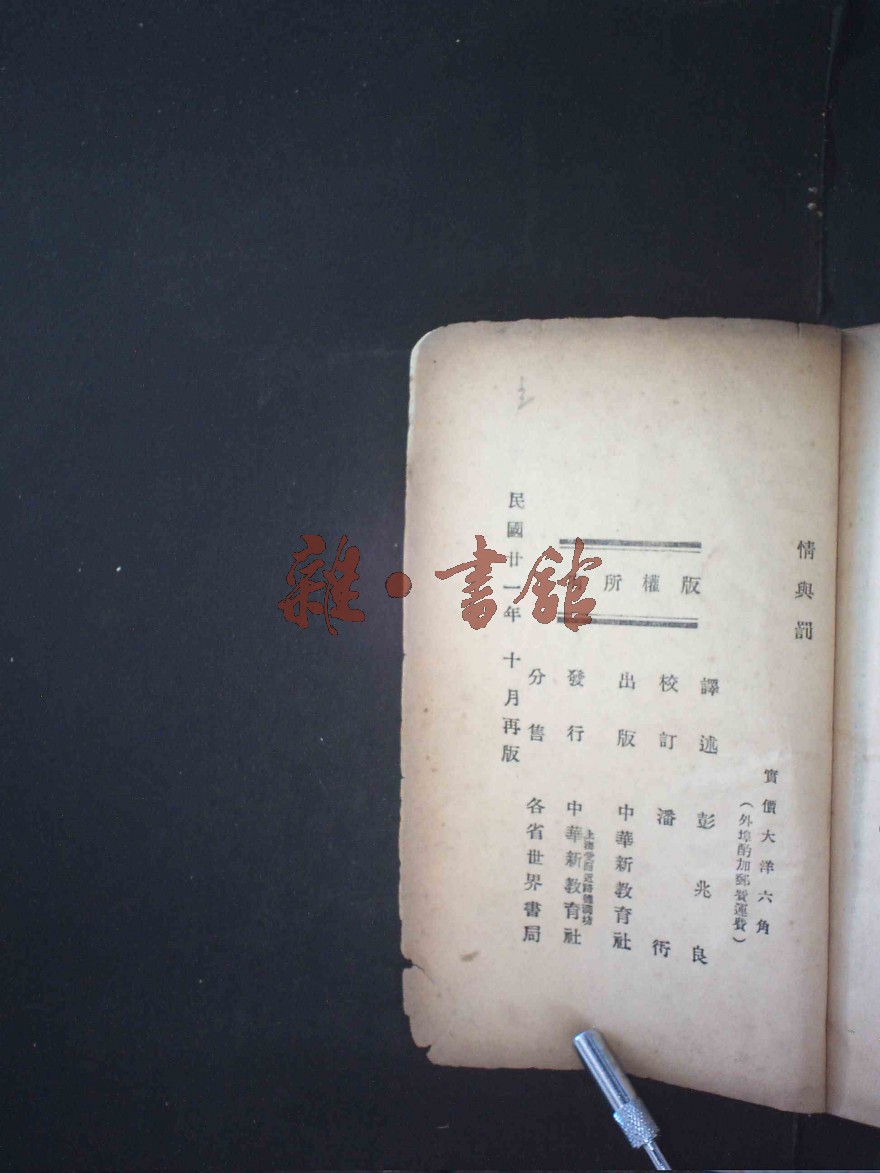 情與罰
實價大洋六角
（外埠酌加郵費運費）
譯述 彭兆良
校訂 潘 衎
出版 中華新教育社
發行 中華新教育社
分售 各省世界書局
版權所
民國廿一年 十月再版
雜·書館